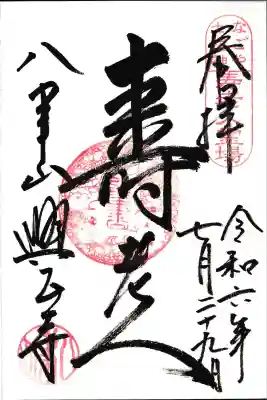 奉拝
令和六年
七月二十九日
寿老人
八事山興正寺